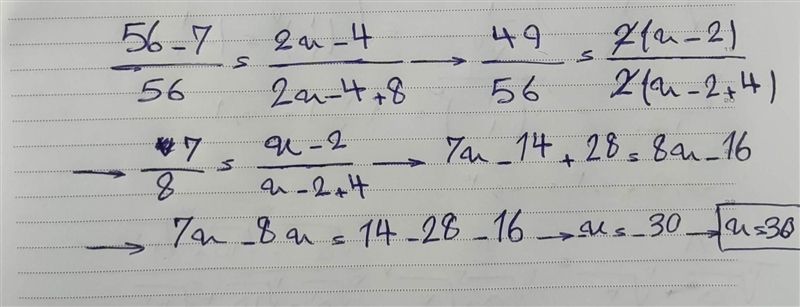 (56-7)/56 = (2x-4)/(2x-4+8) → 49/56 = 2(x-2)/2(x-2+4)
→ 7/8 = (x-2)/(x-2+4) → 7x-14+28=8x-16
→ 7x-8x=14-28-16 → -x=-30 → x=30